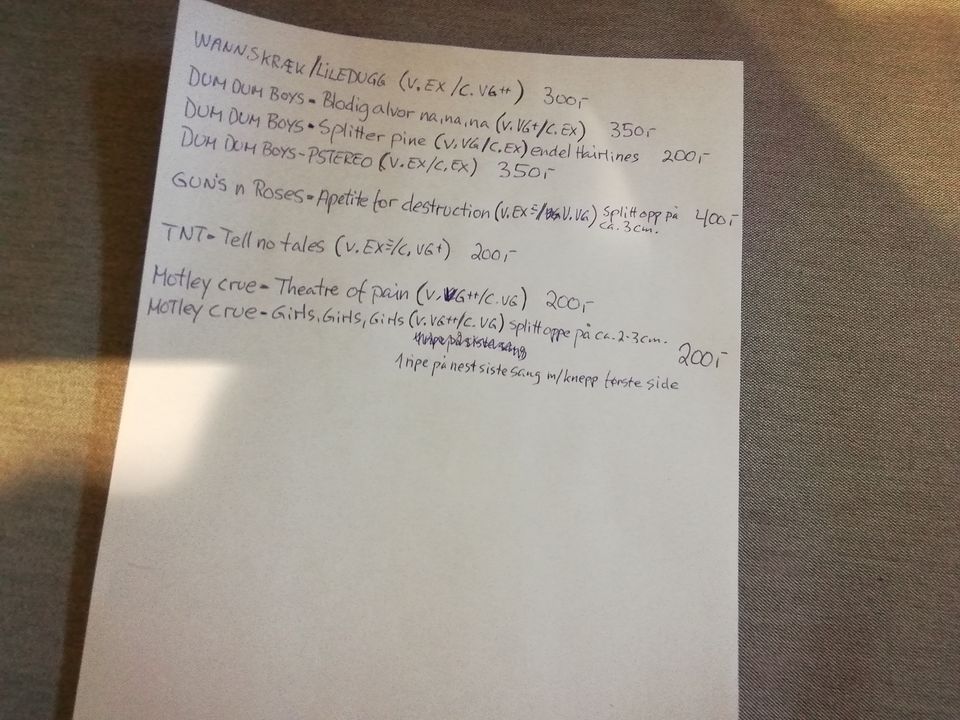 WANNSKRÆK/LILEDUGG (V.EX/C.VG++) 300,-
DUM DUM BOYS - Blodig alvor na,na,na (V.VG+/C.EX) 350,-
DUM DUM BOYS - Splitter pine (V.VG/C.EX) endel Hairlines 200,-
DUM DUM BOYS - PSTEREO (V.EX/C.EX) 350,-
GUN'S n Roses - Apetite for destruction (V.EX-/V.VG) Splitt opp på 400,-
ca. 3 cm.
TNT - Tell no tales (V.EX-/C.VG+) 200,-
Motley crue - Theatre of pain (V.VG++/C.VG) 200,-
Motley crue - Girls, Girls, Girls (V.VG++/C.VG) splitt oppe på ca. 2-3 cm. 200,-
1 ripe på nest siste sang m/knepp første side